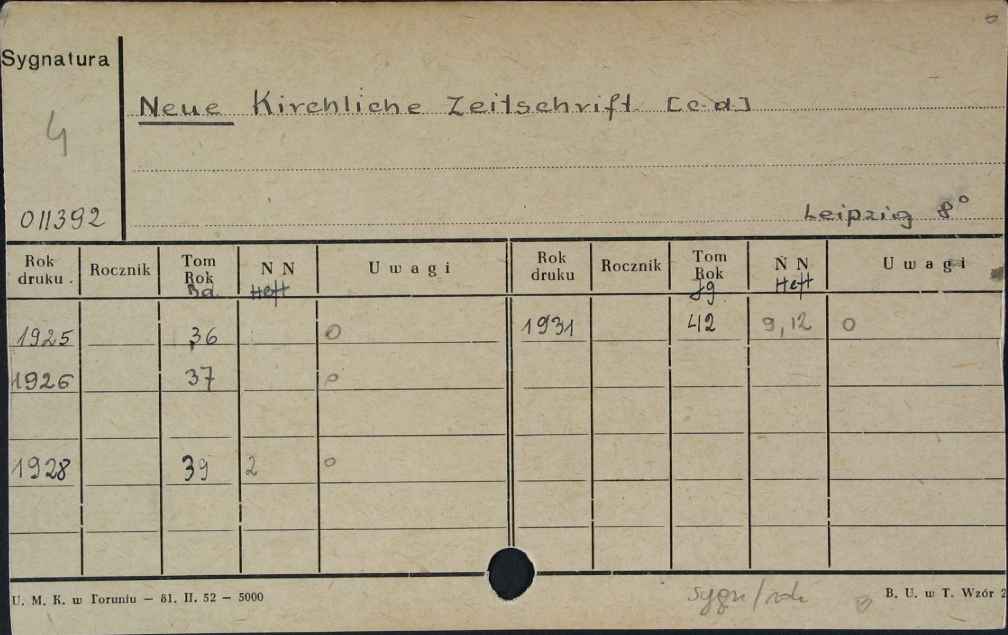 Sygnatura
4
Neue Kirchliche Zeitschrift [c.d]
011392
Leipzig 8°
Rok druku. Rocznik Tom Rok Bd. N N Heft Uwagi Rok druku Rocznik Tom Rok Jg. N N Heft Uwagi
1925 36 o 1931 42 9, 12 o
1926 37 o
1928 39 2 o
U. M. K. w Toruniu — 81. II. 52 — 5000
sygn/rok
B. U. w T. Wzór 2